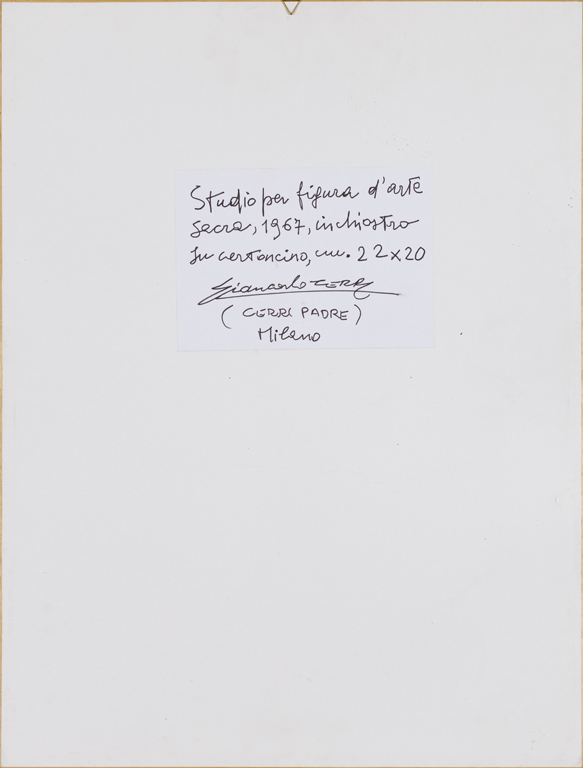 Studio per figura d'arte
sacra, 1967, inchiostro
su cartoncino, cm. 22x20
Giancarlo CERRI
( CERRI PADRE )
Milano